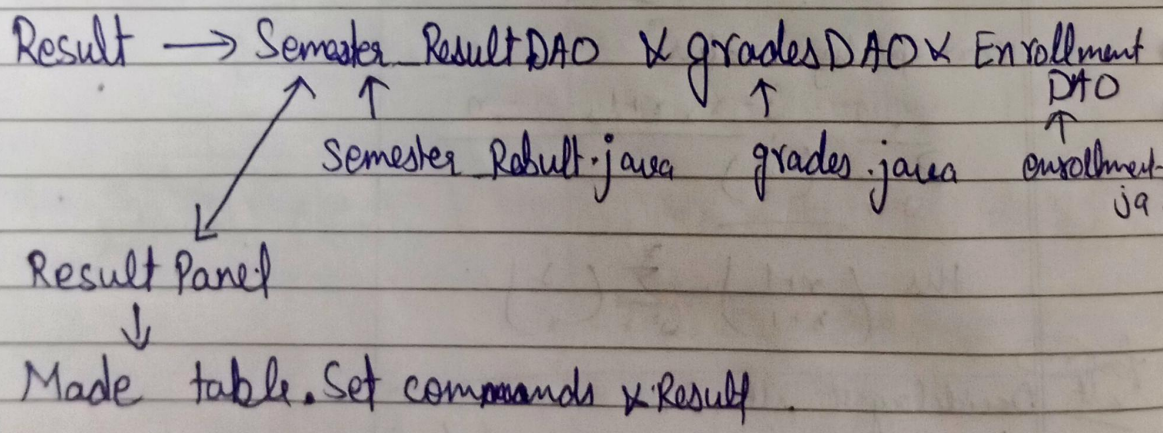 Result → Semester_ResultDAO & gradesDAO & Enrollment
DAO
Semester_Result.java grades.java enrollment.
ja
Result Panel
Made table. Set commands & Result.